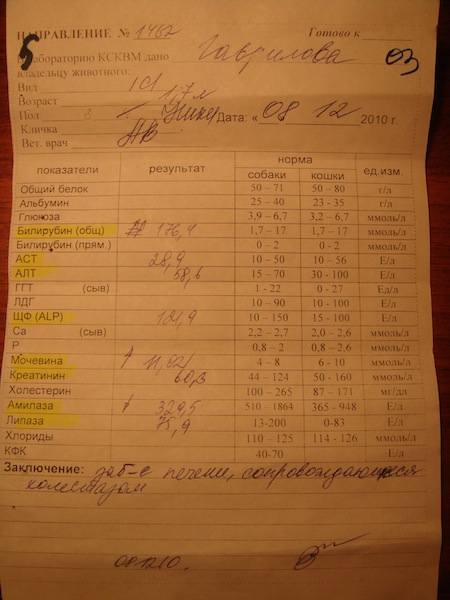 НАПРАВЛЕНИЕ № 1462 Готово к
5
В лабораторию КСКВМ дано Гаврилова 03
владельцу животного:
Вид
Возраст 1,7 л
Пол
Кличка Дата: « 08 12 2010 г.
Вет. врач АВ
показатели результат норма ед.изм.
собаки кошки
Общий белок 50 – 71 50 – 80 г/л
Альбумин 25 – 40 23 - 35 г/л
Глюкоза 3,9 – 6,7 3,2 – 6,7 ммоль/л
Билирубин (общ) 176,4 1,7 – 17 1,7 – 17 ммоль/л
Билирубин (прям.) 0 – 2 0 – 2 ммоль/л
АСТ 28,9 10 – 50 10 – 56 Е/л
АЛТ 58,6 15 – 70 30 - 100 Е/л
ГГТ (сыв) 1 - 22 0 - 27 Е/л
ЛДГ 10 – 90 10 - 100 Е/л
ЩФ (ALP) 104,9 10 – 150 15 - 100 Е/л
Са (сыв) 2,2 – 2,7 2,0 – 2,6 ммоль/л
Р 0,8 – 2 0,8 – 2,6 ммоль/л
Мочевина ↑ 11,82 4 – 8 6 - 10 ммоль/л
Креатинин 60,3 44 – 124 50 - 160 ммоль/л
Холестерин 100 – 265 87 – 171 мг/дл
Амилаза 329,5 510 - 1864 365 - 948 Е/л
Липаза 75,9 13-200 0-83 Е/л
Хлориды 110 – 125 114 - 126 ммоль/л
КФК 40-70 Е/л
Заключение: заб-е печени, сопровождающееся
холестазом
081210.